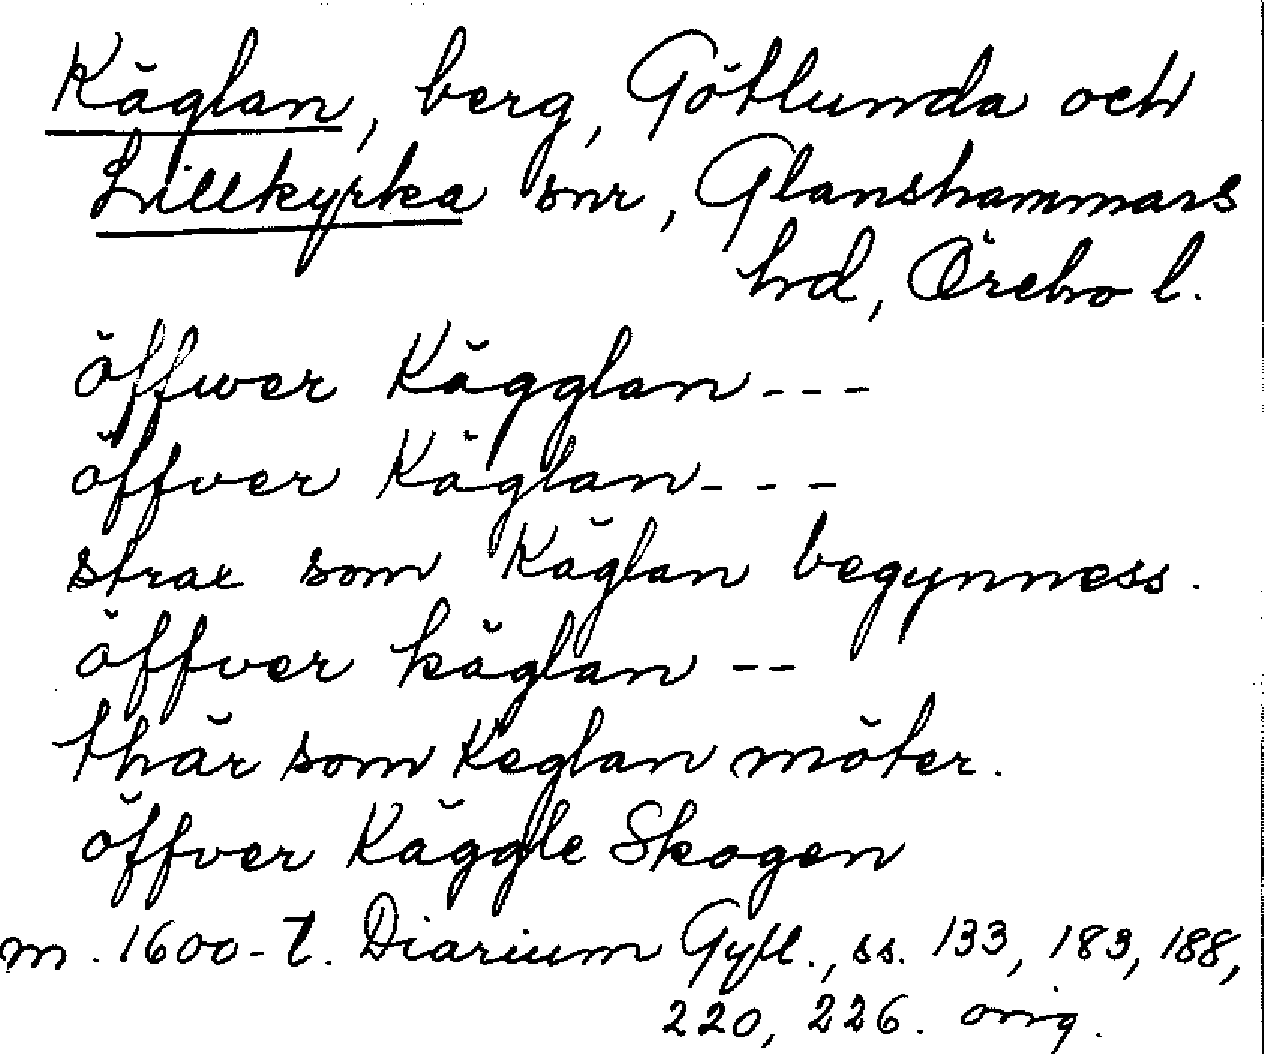 Käglan, berg, Götlunda och
Lillkyrka snr, Glanshammars
hd, Örebro l.
öffwer Kägglan - - -
öffver Käglan - - -
strax som Käglan begynness.
öffver käglan - -
thär som Keglan möter.
öffver Käggle Skogen
m. 1600-t. Diarium Gyll., ss. 133, 183, 188,
220, 226. orig.